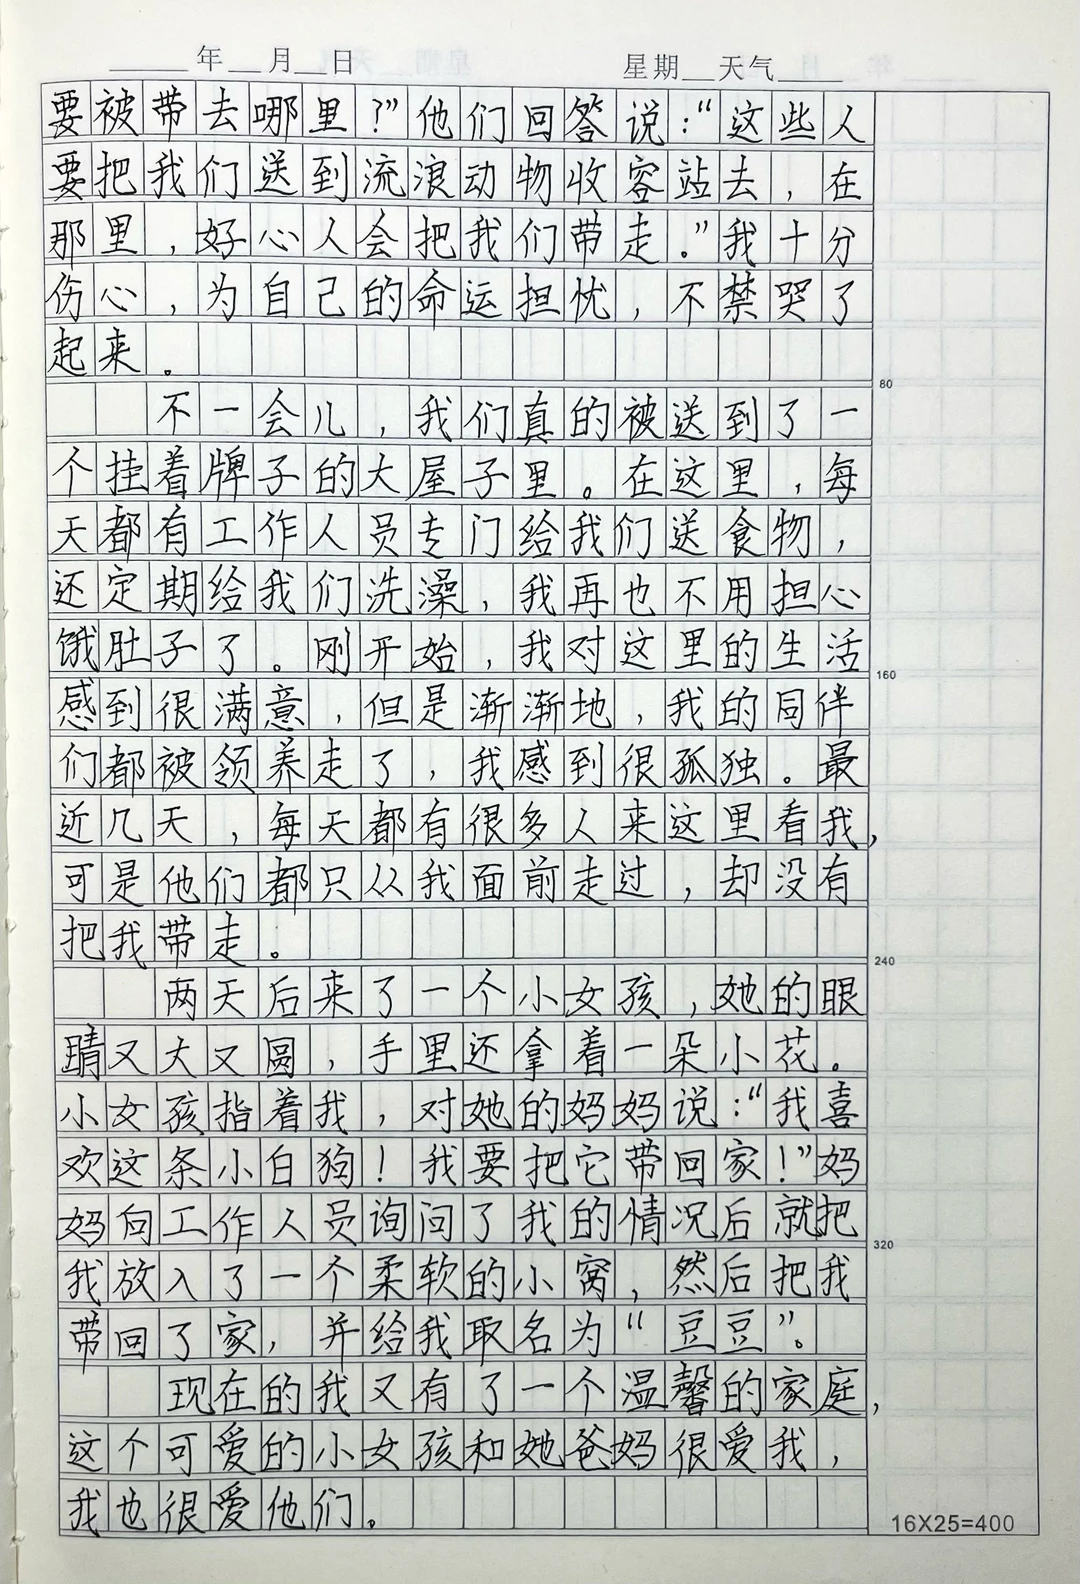 年 月 日 星期 天气
要被带去哪里?”他们回答说:“这些人
要把我们送到流浪动物收容站去,在
那里,好心人会把我们带走。”我十分
伤心,为自己的命运担忧,不禁哭了
起来。
80
不一会儿,我们真的被送到了一
个挂着牌子的大屋子里。在这里,每
天都有工作人员专门给我们送食物,
还定期给我们洗澡,我再也不用担心
饿肚子了。刚开始,我对这里的生活
160
感到很满意,但是渐渐地,我的同伴
们都被领养走了,我感到很孤独。最
近几天,每天都有很多人来这里看我,
可是他们都只从我面前走过,却没有
把我带走。
240
两天后来了一个小女孩,她的眼
睛又大又圆,手里还拿着一朵小花。
小女孩指着我,对她的妈妈说:“我喜
欢这条小白狗!我要把它带回家!”妈
妈向工作人员询问了我的情况后就把
320
我放入了一个柔软的小窝,然后把我
带回了家,并给我取名为“豆豆”。
现在的我又有了一个温馨的家庭,
这个可爱的小女孩和她爸妈很爱我,
我也很爱他们。
16X25=400